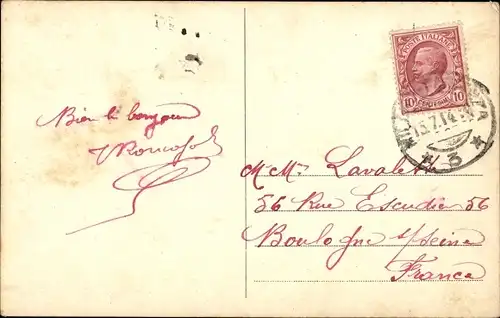 Bien le bonjour
POSTE ITALIANE
10 CENTESIMI 10
15.7.14
* 3 *
M M. Lavalette
56 Rue Escudier 56
Boulogne s/seine
France